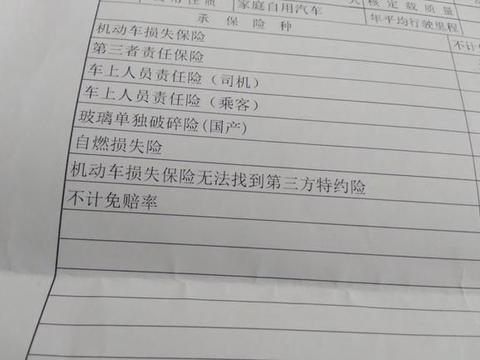 家庭自用汽车 核定载质量
承保险种 年平均行驶里程
机动车损失保险 不计
第三者责任保险
车上人员责任险（司机）
车上人员责任险（乘客）
玻璃单独破碎险(国产)
自燃损失险
机动车损失保险无法找到第三方特约险
不计免赔率